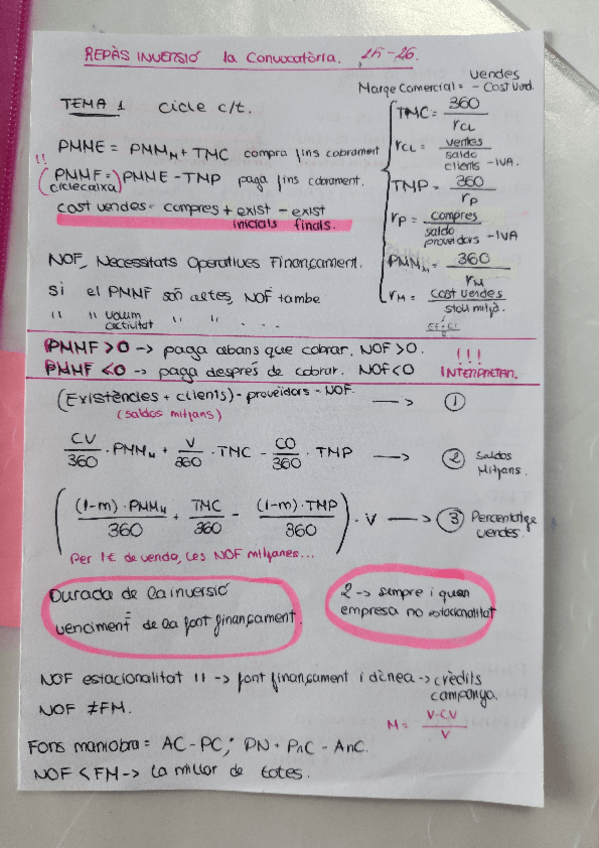 REPÀS INVERSIÓ 1a Convocatòria. 25-26.
Marge Comercial = vendes - Cost Vend.
TEMA 1 Cicle c/t.
TMC = 360 / rCL
PMME = PMMM + TMC compra fins cobrament
rCL = vendes / saldo clients - IVA.
!! (PMMF =) PMME - TMP paga fins cobrament.
ciclecaixa
TMP = 360 / rP
cost vendes = compres + exist inicials - exist finals.
rP = compres / saldo proveïdors - IVA
NOF, Necessitats Operatives Finançament.
PMMM = 360 / rM
si el PMMF són altes, NOF també
rM = cost vendes / stock mitjà.
" " volum activitat " " . . .
PMMF > 0 -> paga abans que cobrar. NOF > 0. !!!
PMMF < 0 -> paga després de cobrar. NOF < 0 INTERPRETAR.
(Existències + clients) - proveïdors = NOF. -> 1
(saldos mitjans)
CV/360 · PMMM + V/360 · TMC - CO/360 · TMP -> 2 Saldos Mitjans.
((1-m) · PMMM / 360 + TMC / 360 - (1-m) · TMP / 360) · V -> 3 Percentatge vendes.
Per 1€ de venda, les NOF mitjanes...
Durada de la inversió
=
venciment de la font finançament.
2 -> sempre i quan
empresa no estacionalitat
NOF estacionalitat !! -> font finançament idònea -> crèdits campanya.
NOF ≠ FM.
M = V-CV / V
Fons maniobra = AC - PC; PN + PnC - AnC.
NOF < FM -> la millor de totes.